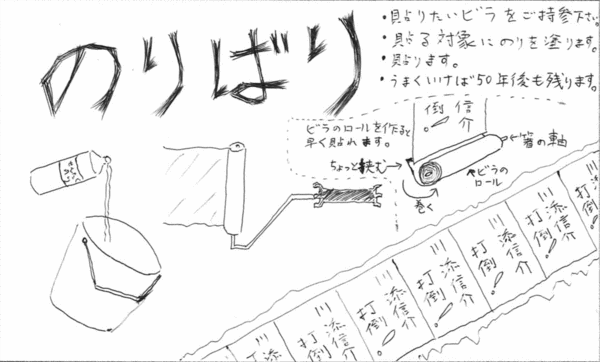 のりばり
・貼りたいビラをご持参下さい。
・貼る対象にのりを塗ります。
・貼ります。
・うまくいけば50年後も残ります。
ビラのロールを作ると
早く貼れます。
ちょっと挟む→
信介
倒!
←箸の軸
←ビラの
ロール
巻く
川添信介
打倒!
川添信介
打倒!
川添信介
打倒!
川添信介
打倒!
川添信介
打倒!
川添信介
打倒!
川添信介
打倒!